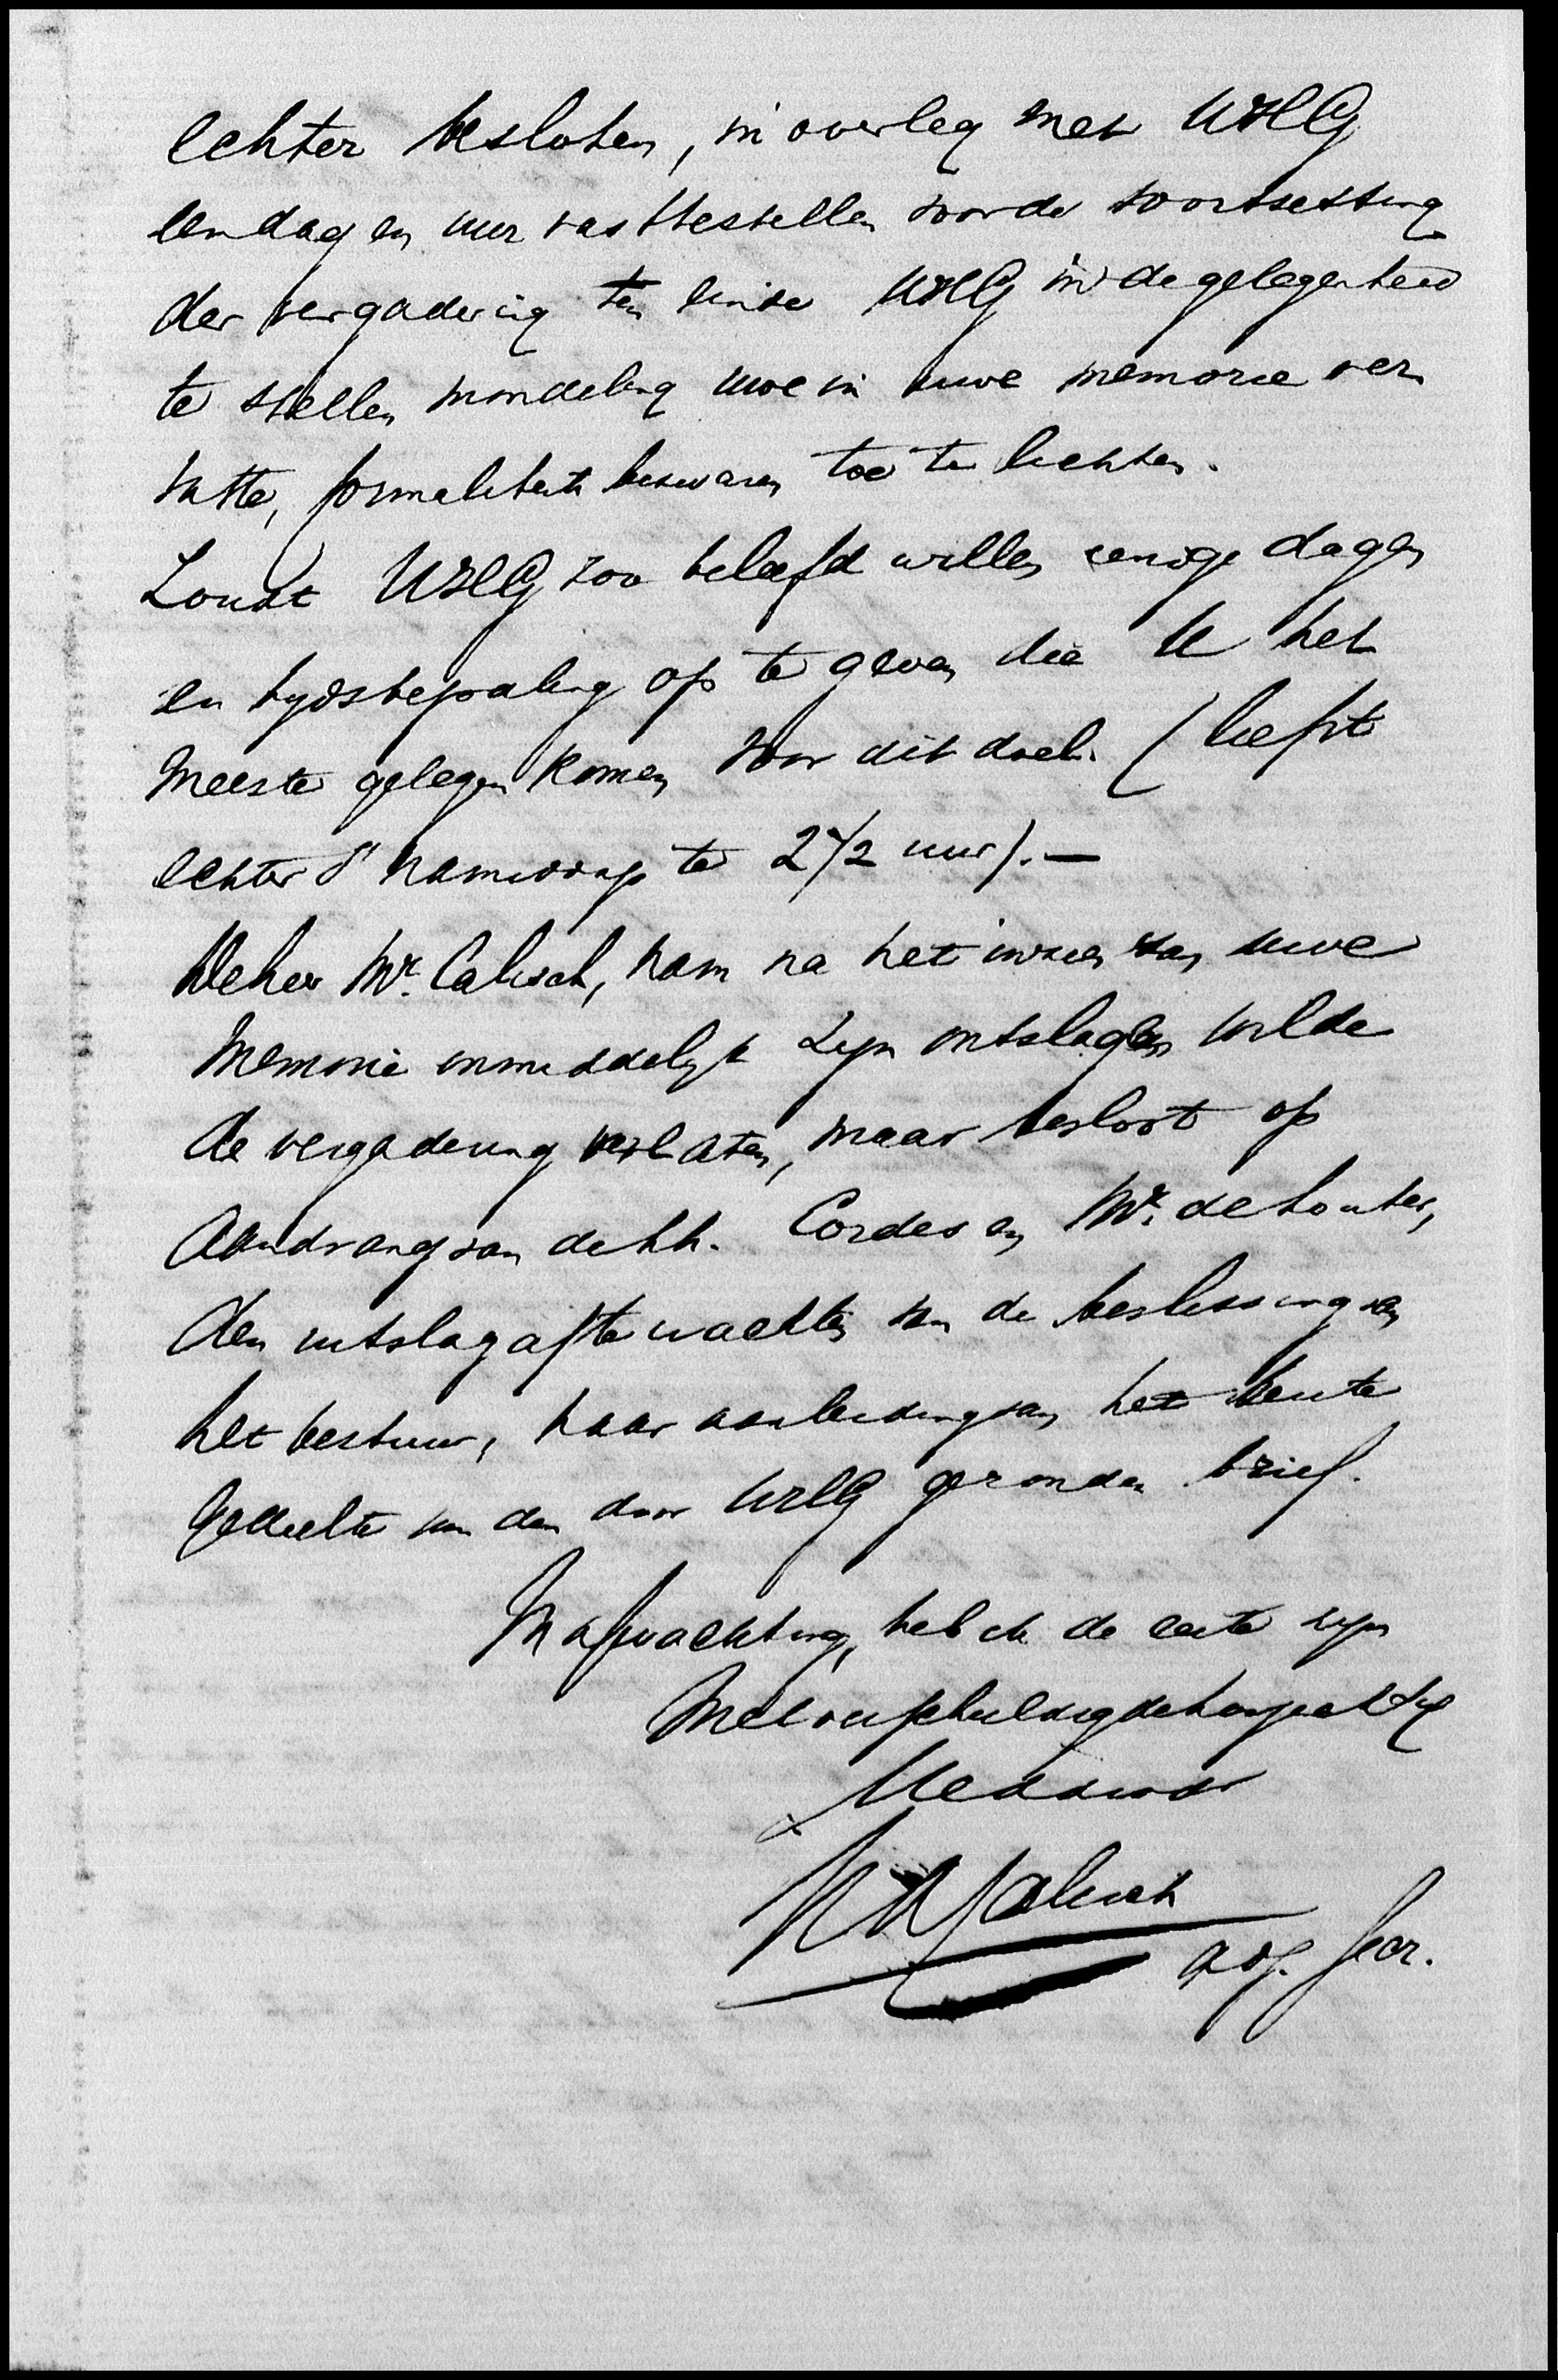 echter besloten, in overleg met UZEG
een dag en uur vasttestellen voor de voortzetting
der vergadering ten einde UZEG in de gelegenheid
te stellen mondeling uwe in uwe memorie ver
vatte, formaliteits bezwaren toe te lichten.
Zoudt UZEG zoo beleefd willen eenige dagen
en tydsbepaling op te geven die U het
meeste gelegen komen voor dit doel. (liefst
echter 's namiddags te 2 1/2 uur). —
De heer Mr. Calisch, nam na het inzien van uwe
Memorie onmiddelyk zyn ontslag en wilde
de vergadering verlaten, maar besloot op
aandrang van de hh. Cordes en Mr. de Louter,
den uitslag aftewachten van de beslissing van
het bestuur, naar aanleiding van het
gedeelte van den door UZEG gezonden brief.
In afwachting, heb ik de eer te zyn
Met verschuldigde hoogachting
UEd dw dr
Calisch
adj. Secr.